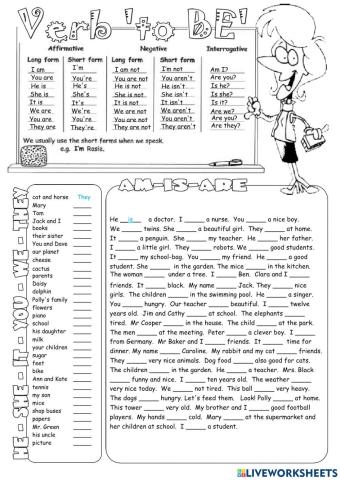 Verb 'to BE'
Affirmative Negative Interrogative
Long form Short form Long form Short form
I am I'm I am not I'm not Am I?
You are You're You are not You aren't Are you?
He is He's He is not He isn't Is he?
She is She's She is not She isn't Is she?
It is It's It is not It isn't Is it?
We are We're We are not We aren't Are we?
You are You're You are not You aren't Are you?
They are They're They are not They aren't Are they?
We usually use the short forms when we speak.
e.g. I'm Rasis.
HE - SHE - IT - YOU - WE - THEY
cat and horse They
Mary
Tom
Jack and I
books
their sister
You and Dave
our planet
cheese
cactus
parents
Daisy
dolphin
Polly's family
flowers
piano
school
his daughter
milk
your children
sugar
feet
bike
Ann and Kate
tennis
my son
mice
shop buses
papers
Mr. Green
his uncle
picture
AM-IS-ARE
He __is__ a doctor. I _____ a nurse. You _____ a nice boy.
We _____ twins. She _____ a beautiful girl. They _____ at home.
It _____ a penguin. She _____ my teacher. He _____ her father.
I _____ a little girl. They _____ robots. We _____ good students.
It _____ my school-bag. You _____ my friend. He _____ a good
student. She _____ in the garden. The mice _____ in the kitchen.
The woman _____ under a tree. I _____ Ben. Clara and I _____
friends. It _____ black. My name _____ Jack. They _____ nice
girls. The children _____ in the swimming pool. He _____ a singer.
You _____ hungry. Our teacher _____ beautiful. I _____ twelve
years old. Jim and Cathy _____ at school. The elephants _____
tired. Mr Cooper _____ in the house. The child _____ at the park.
The men _____ at the meeting. Peter _____ a clever boy. I _____
from Germany. Mr Baker and I _____ friends. It _____ time for
dinner. My name _____ Caroline. My rabbit and my cat _____ friends.
They _____ very nice animals. Dog food _____ also good for cats.
The children _____ in the garden. He _____ a teacher. Mrs. Black
_____ funny and nice. I _____ ten years old. The weather _____
very nice today. We _____ not tired. This ball _____ very heavy.
The dogs _____ hungry. Let's feed them. Look! Polly _____ at home.
This tower _____ very old. My brother and I _____ good football
players. My hands _____ cold. Mary _____ at the supermarket and
her children at school. I _____ a student.
LIVEWORKSHEETS